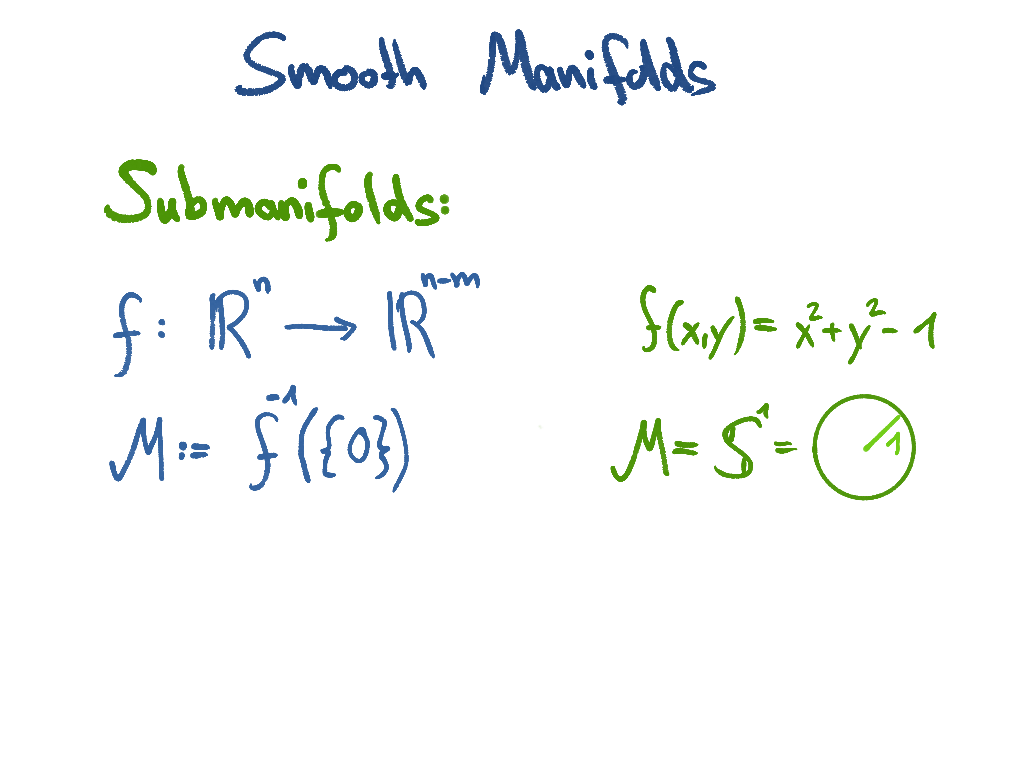 Smooth Manifolds
Submanifolds:
f: ℝⁿ → ℝⁿ⁻ᵐ
f(x,y) = x² + y² - 1
M := f⁻¹({0})
M = S¹ =
1